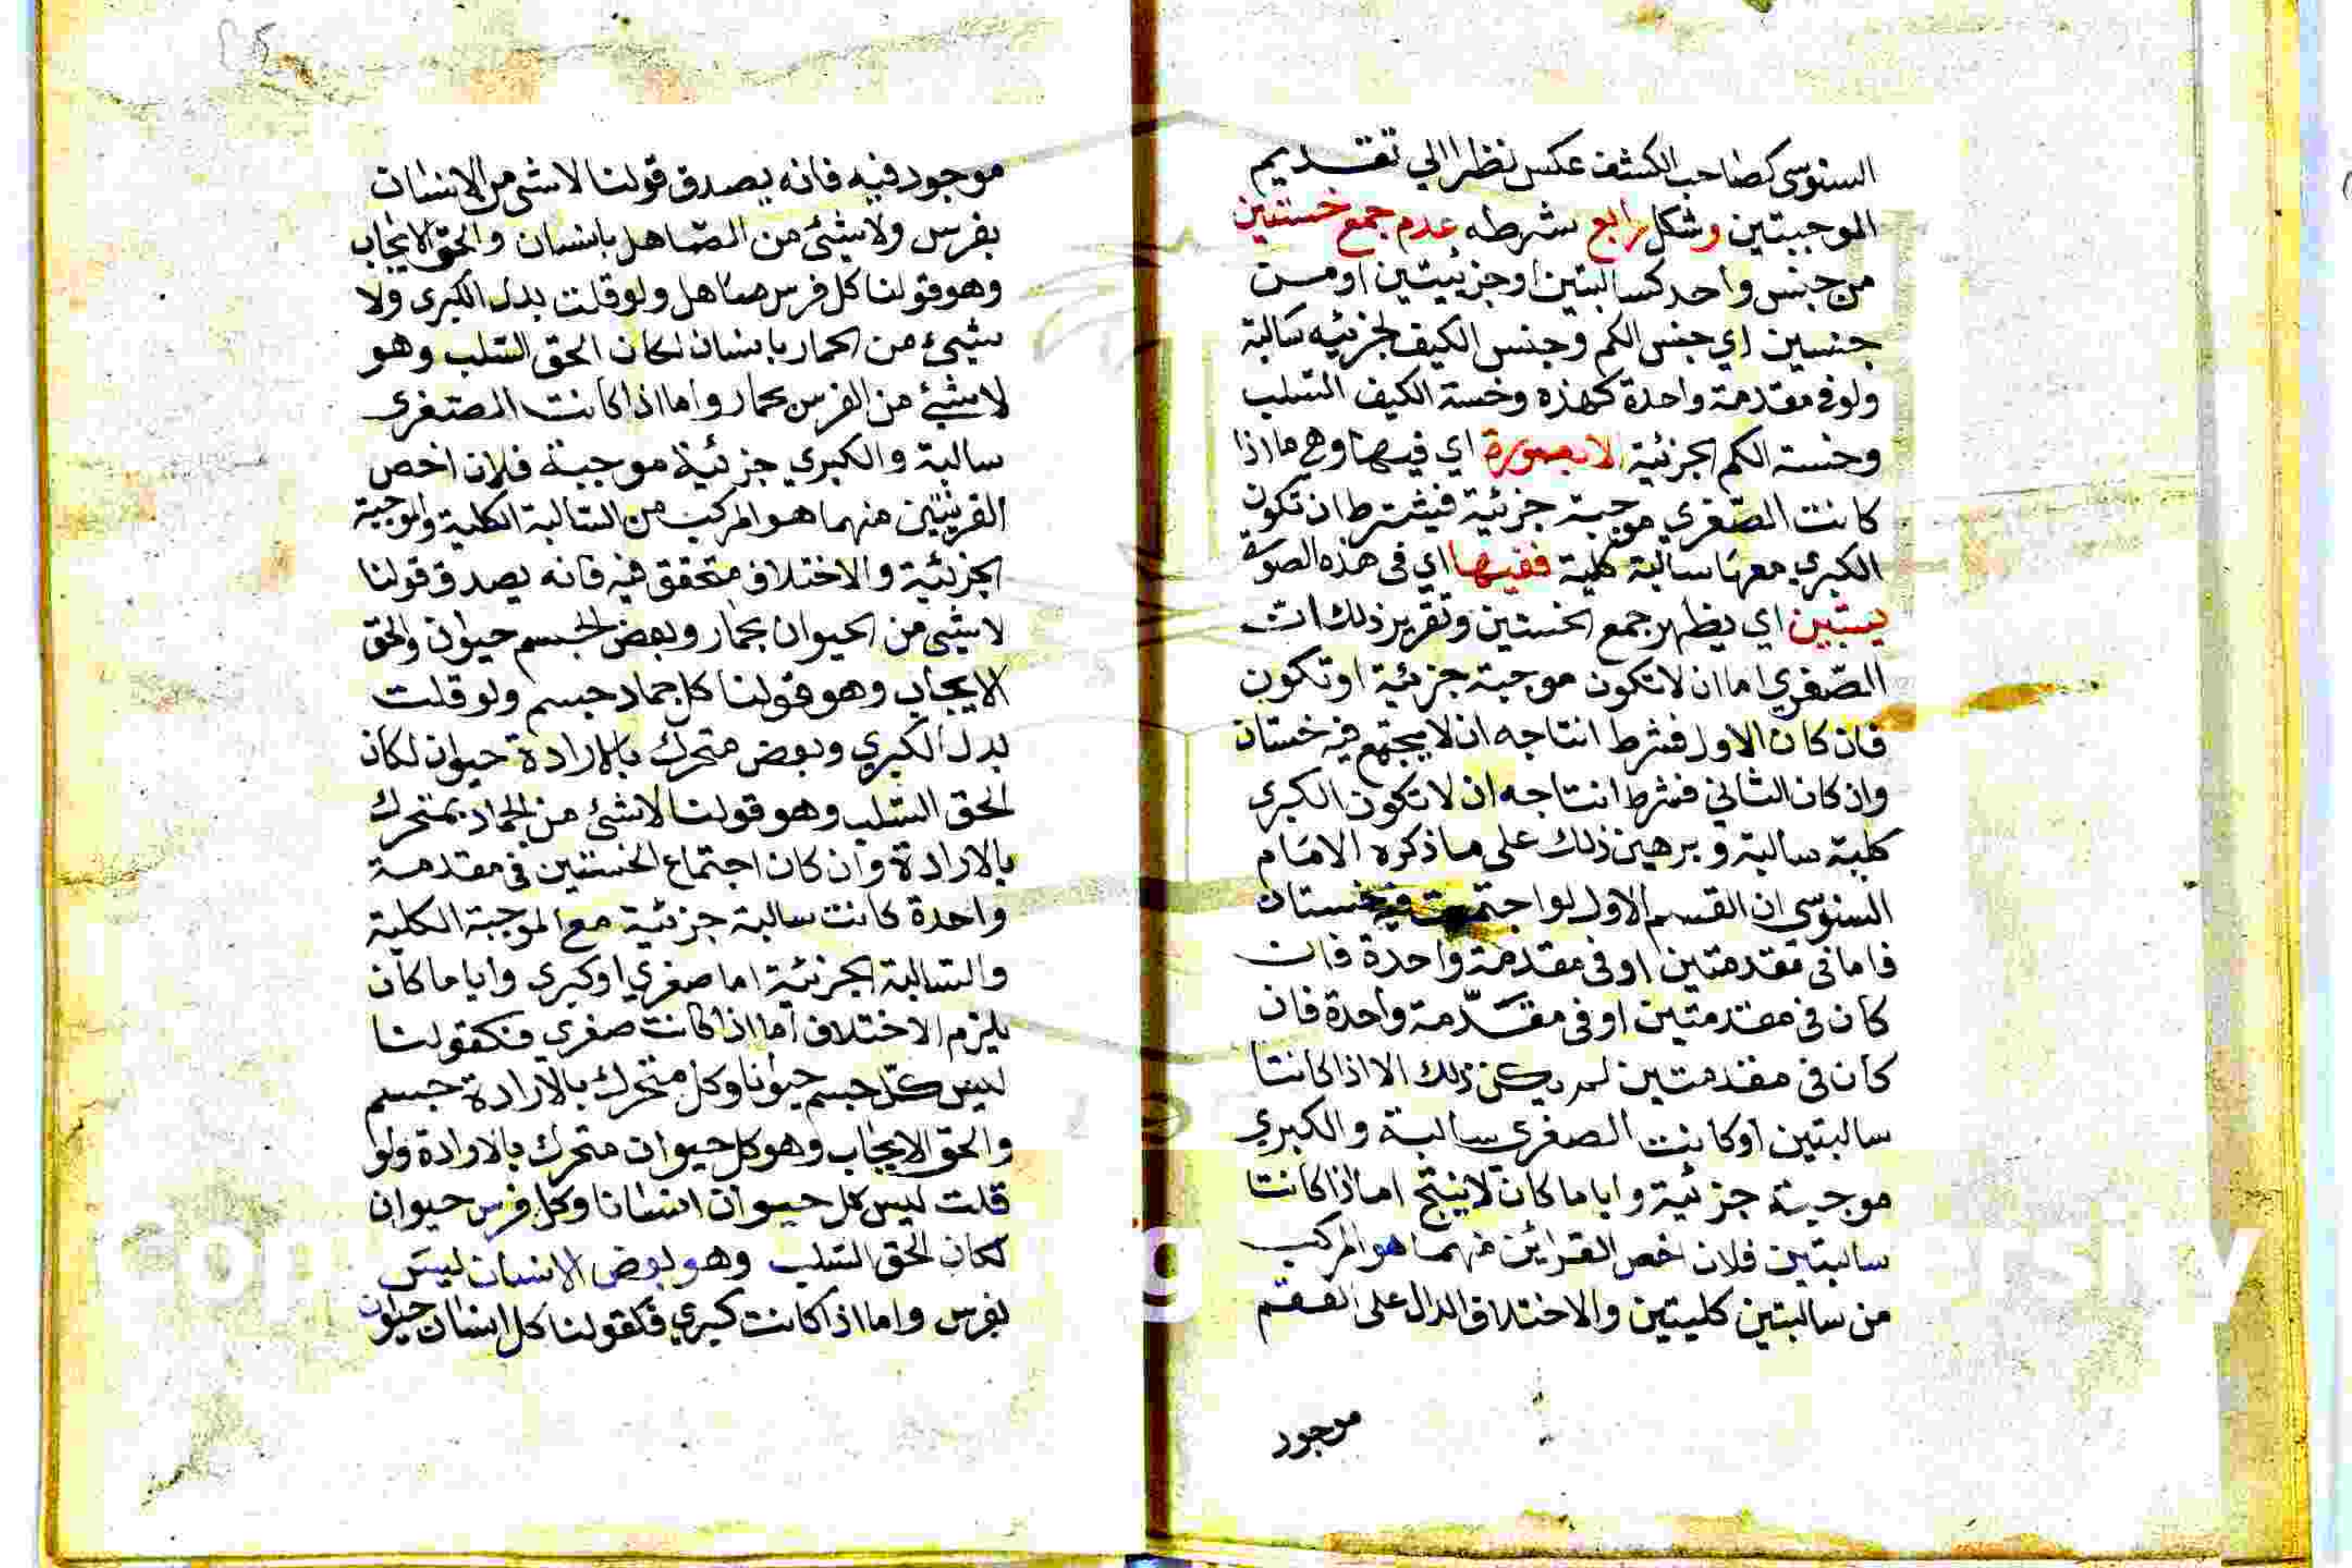 السنوسي كصاحب الكشف عكس نظرا الي تقديم
الموجبتين وشكل رابع شرطه عدم جمع خستين
من جنس واحد كسالبتين او جزئيتين او من
جنسين اي جنس الكم وجنس الكيف لجزئيه سالبة
ولو في مقدمة واحدة كهذه وخسة الكيف السلب
وخسة الكم الجزئية الا بصورة اي فيها وهي ما اذا
كانت الصغري موجبة جزئية فيشترط ان تكون
الكبري معها سالبة كلية ففيها اي في هذه الصورة
يستبين اي يظهر جمع الخستين وتقرير ذلك ان
الصغري اما ان لا تكون موجبة جزئية او تكون
فان كان الاول فشرط انتاجه ان لا يجتمع فيه خستان
وان كان الثاني فشرط انتاجه ان لا تكون الكبري
كلية سالبة وبرهين ذلك على ما ذكره الامام
السنوسي ان القسم الاول لو اجتمعت فيه خستان
فاما في مقدمتين او في مقدمة واحدة فان
كان في مقدمتين او في مقدمة واحدة فان
كان في مقدمتين لم يكن ذلك الا اذا كانتا
سالبتين او كانت الصغرى سالبة والكبري
موجبة جزئية واياما كان لا ينتج اما اذا كانتا
سالبتين فلان اخص القرائن منهما هو المركب
من سالبتين كليتين والاختلاق الدال على العقم
موجود
موجود فيه فانه يصدق قولنا لا شئ من الانسان
بفرس ولا شئ من الصاهل بانسان والحق الايجاب
وهو قولنا كل فرس صاهل ولو قلت بدل الكبرى ولا
شيئ من الحمار بانسان لكان الحق السلب وهو
لا شيئ من الفرس بحمار واما اذا كانت الصغرى
سالبة والكبري جزئية موجبة فلان اخص
القرينتين منهما هو المركب من السالبة الكلية والموجبة
الجزئية والاختلاف متحقق فيه فانه يصدق قولنا
لا شيئ من الحيوان بجماد وبعض الجسم حيوان والحق
الايجاب وهو قولنا كل جماد جسم ولو قلت
بدل الكبري وبعض متحرك بالارادة حيوان لكان
الحق السلب وهو قولنا لا شئ من الجماد بمتحرك
بالارادة وان كان اجتماع الخستين في مقدمة
واحدة كانت سالبة جزئية مع الموجبة الكلية
والسالبة الجزئية اما صغري او كبري واياما كان
يلزم الاختلاف اما اذا كانت صغري فكقولنا
ليس كل جسم حيوانا وكل متحرك بالارادة جسم
والحق الايجاب وهو كل حيوان متحرك بالارادة ولو
قلت ليس كل حيوان انسانا وكل فرس حيوان
لكان الحق السلب وهو بعض الانسان ليس
بفرس واما اذا كانت كبري فكقولنا كل انسان حيوان